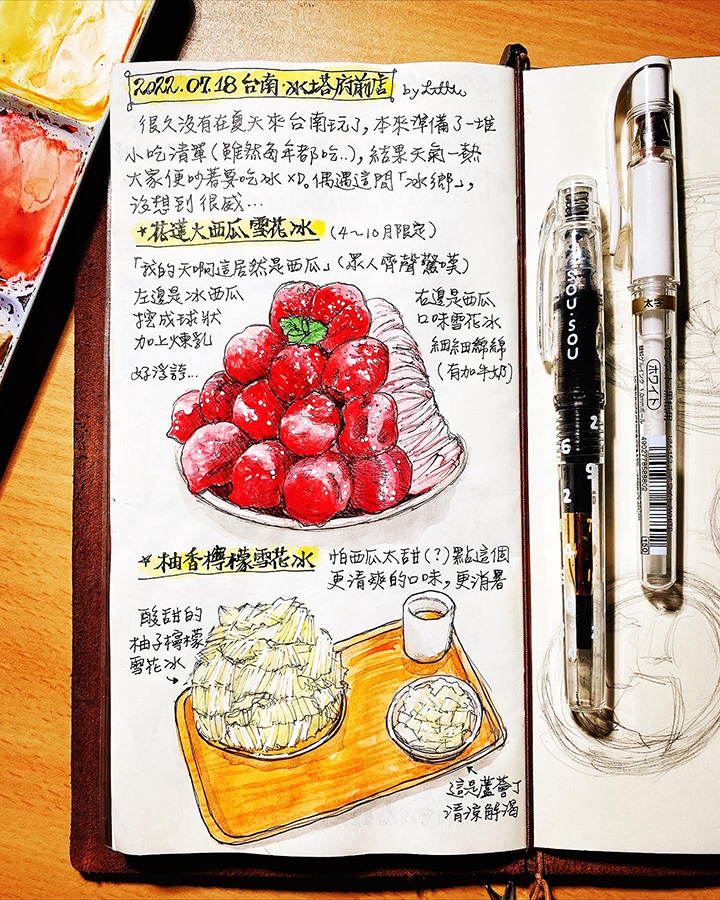 2022.07.18 台南·冰塔府前店
很久沒有在夏天來台南玩了,本來準備了一堆
小吃清單(雖然每年都吃..),結果天氣一熱
大家便吵著要吃冰 XD。偶遇這間「冰鄉」,
沒想到很威…
*花蓮大西瓜雪花冰 (4~10月限定)
「我的天啊這居然是西瓜」(眾人齊聲驚嘆)
左邊是冰西瓜
挖成球狀
加上煉乳
好浮誇…
右邊是西瓜
口味雪花冰
細細綿綿
(有加牛奶)
*柚香檸檬雪花冰
怕西瓜太甜(?)點這個
更清爽的口味,更消暑
酸甜的
柚子檸檬
雪花冰
這是蘆薈丁
清涼解渴
SOU·SOU
2
6
9
2
太字
ホワイト
150